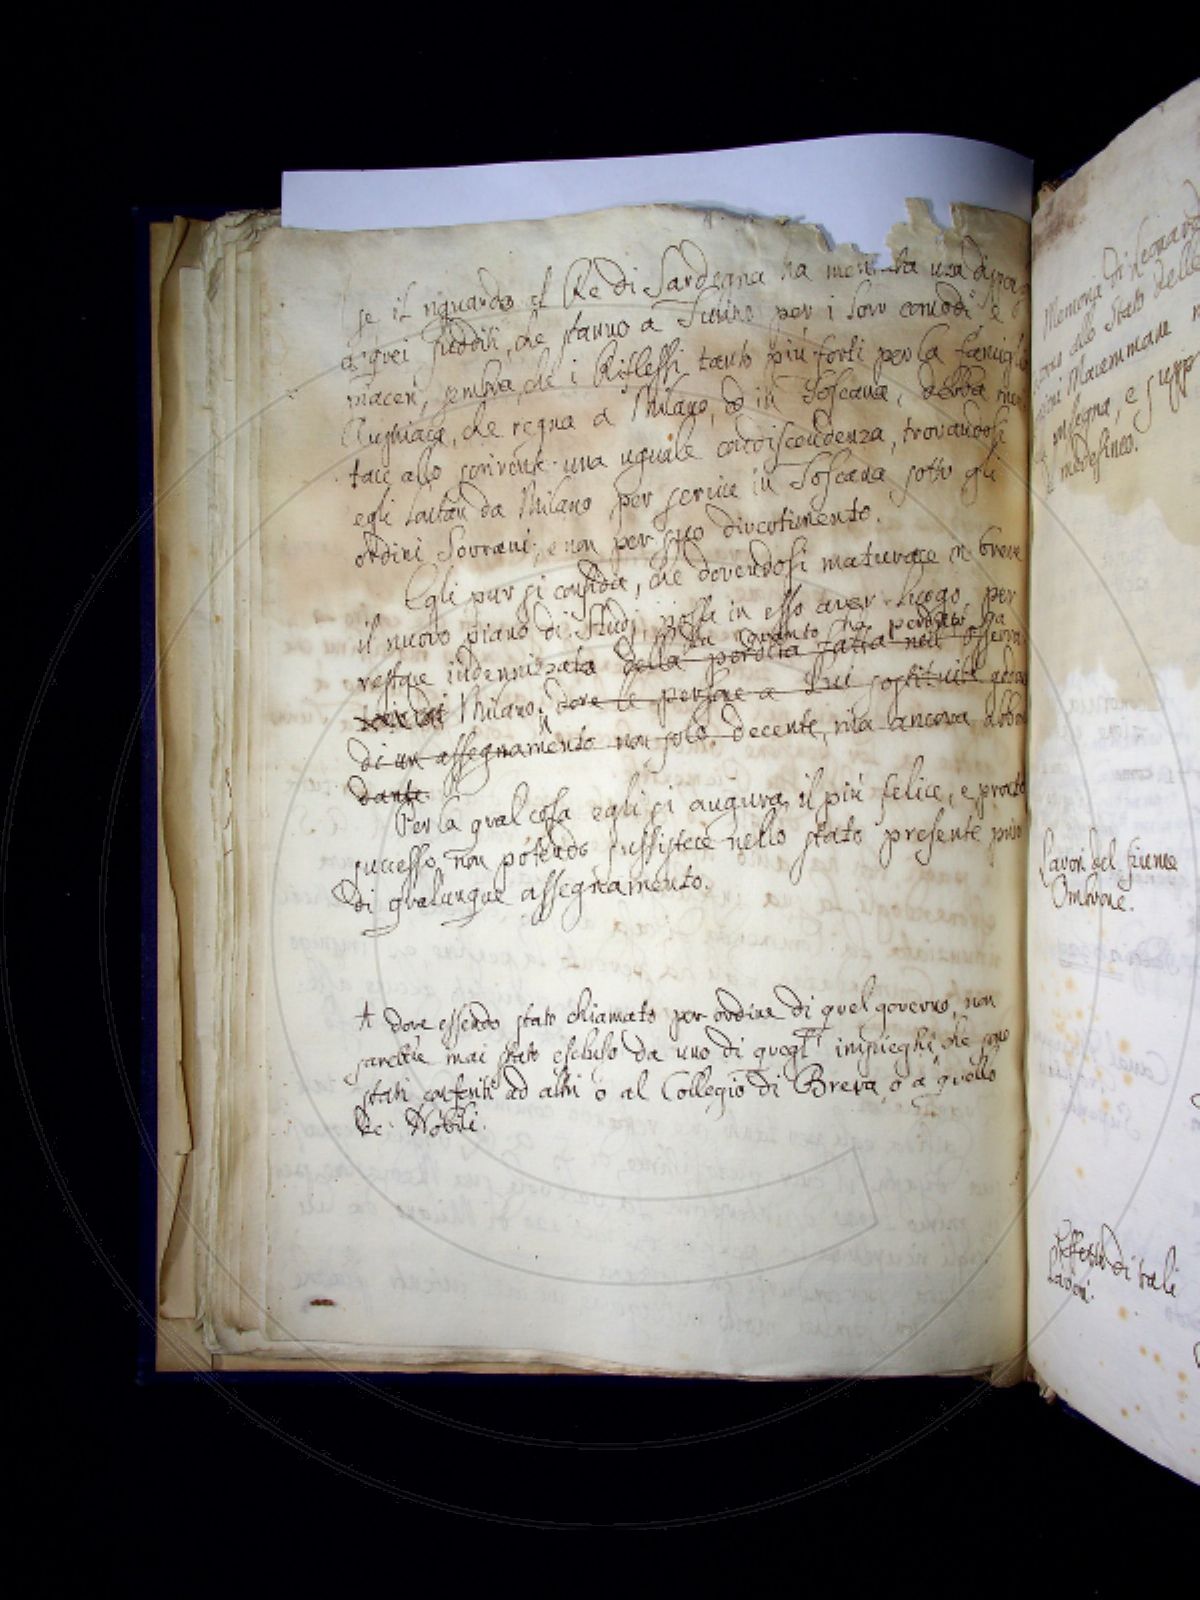 se il riguardo al Re di Sardegna ha meritata una dispo
a quei sudditi, che stanno a Turino per i loro comodi e
piaceri, sembra, che i Riflessi tanto più forti per la famigli
Augusta, che regna a Milano, ed in Toscana, debba meri
tare allo scrivente una uguale condiscendenza, trovandosi
egli lontan da Milano per servire in Toscana sotto gli
ordini Sovrani, e non per suo divertimento.
Egli pur si confida, che dovendosi maturare in breve
il nuovo piano di Studj, possa in esso aver luogo per
restare indennizzato di quanto ha perduto da
della perdita fatta nell' osserva
torio di Milano, dove le persone a Lui sostituite godon
di un assegnamento non solo decente, ma ancora abbon
dante.
Per la qual cosa egli si augura il più felice, e pronto
successo, non potendo sussistere nello stato presente privo
di qualunque assegnamento.
dove essendo stato chiamato per ordine di quel governo, non
sarebbe mai stato escluso da uno di quegl' impieghi che sono
stati conferiti ad altri o al Collegio di Brera, o a quello
de' Nobili.
Memoria di Leonardo
sopra lo Stato delle
Maremmane
insegna, e
medesimo.
Lavori del fiume
Ombrone.
Effetto di tali
Lavori.